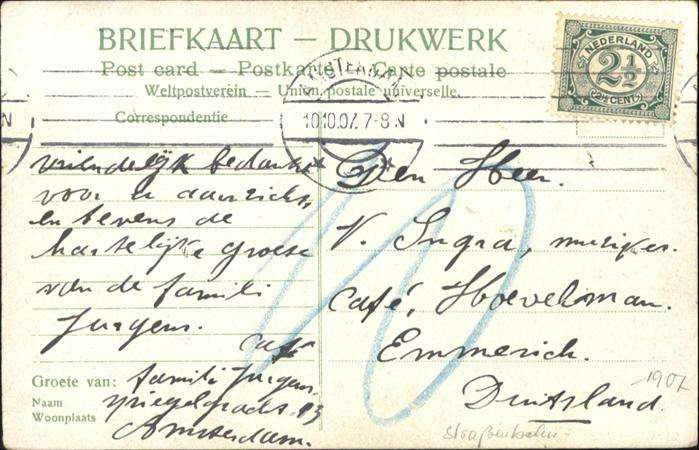 BRIEFKAART — DRUKWERK
Post card — Postkarte — Carte postale
Weltpostverein — Union postale universelle.
Correspondentie
NEDERLAND
2½
(2½ CENT)
AMSTERDAM
10.10.07. 7-8 N
N
vriendelijk bedankt
voor u aanzicht
en tevens de
hartelijke groese
van de familie
Jurgens.
Groete van: familie Jurgens
Naam
Woonplaats
Spiegelgracht 13
Amsterdam.
Den Heer.
V. Ingra, musiker.
café, Hoevelman.
Emmerich.
Duitsland.
1907